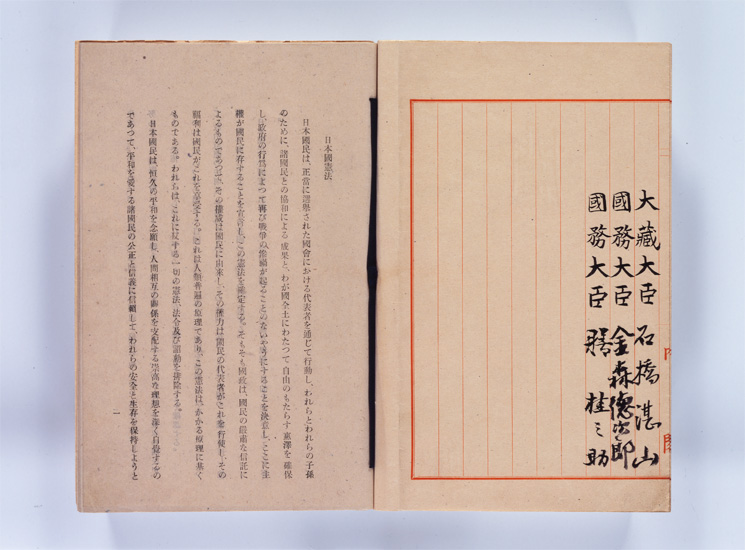 大藏大臣 石橋湛山
國務大臣 金森德次郎
國務大臣 膳桂之助
日本國憲法
日本國民は、正當に選擧された國會における代表者を通じて行動し、われらとわれらの子孫
のために、諸國民との協和による成果と、わが國全土にわたつて自由のもたらす惠澤を確保
し、政府の行爲によつて再び戰爭の慘禍が起ることのないやうにすることを決意し、ここに主
權が國民に存することを宣言し、この憲法を確定する。そもそも國政は、國民の嚴肅な信託に
よるものであつて、その權威は國民に由來し、その權力は國民の代表者がこれを行使し、その
福利は國民がこれを享受する。これは人類普遍の原理であり、この憲法は、かかる原理に基く
ものである。われらは、これに反する一切の憲法、法令及び詔勅を排除する。
日本國民は、恒久の平和を念願し、人間相互の關係を支配する崇高な理想を深く自覺するの
であつて、平和を愛する諸國民の公正と信義に信賴して、われらの安全と生存を保持しようと
一